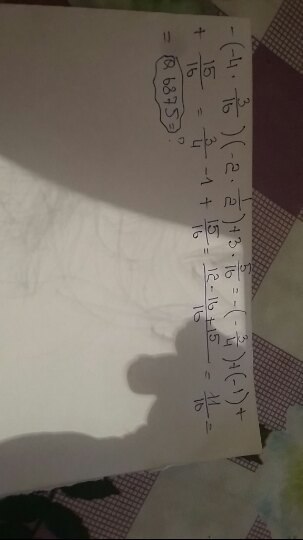 -(-4 · 3/16)(-2 · 1/2)+3 · 5/16 = -(-3/4)+(-1)+
+ 15/16 = 3/4 -1 + 15/16 = 12-16+15/16 = 11/16 =
= 0,6875=?